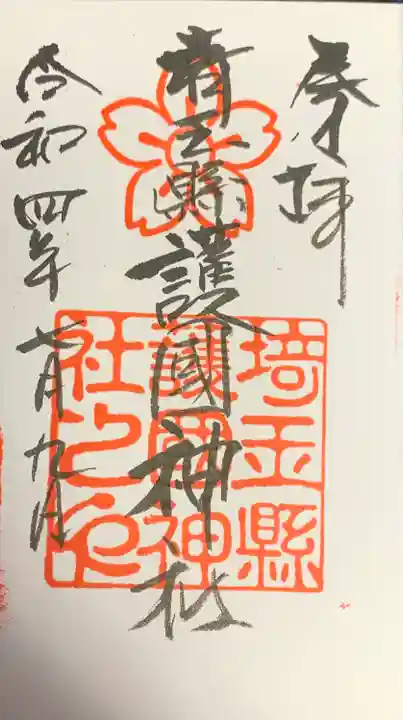 奉拝
埼玉縣護國神社
令和四年 七月九日
埼玉縣
護國神
社之印